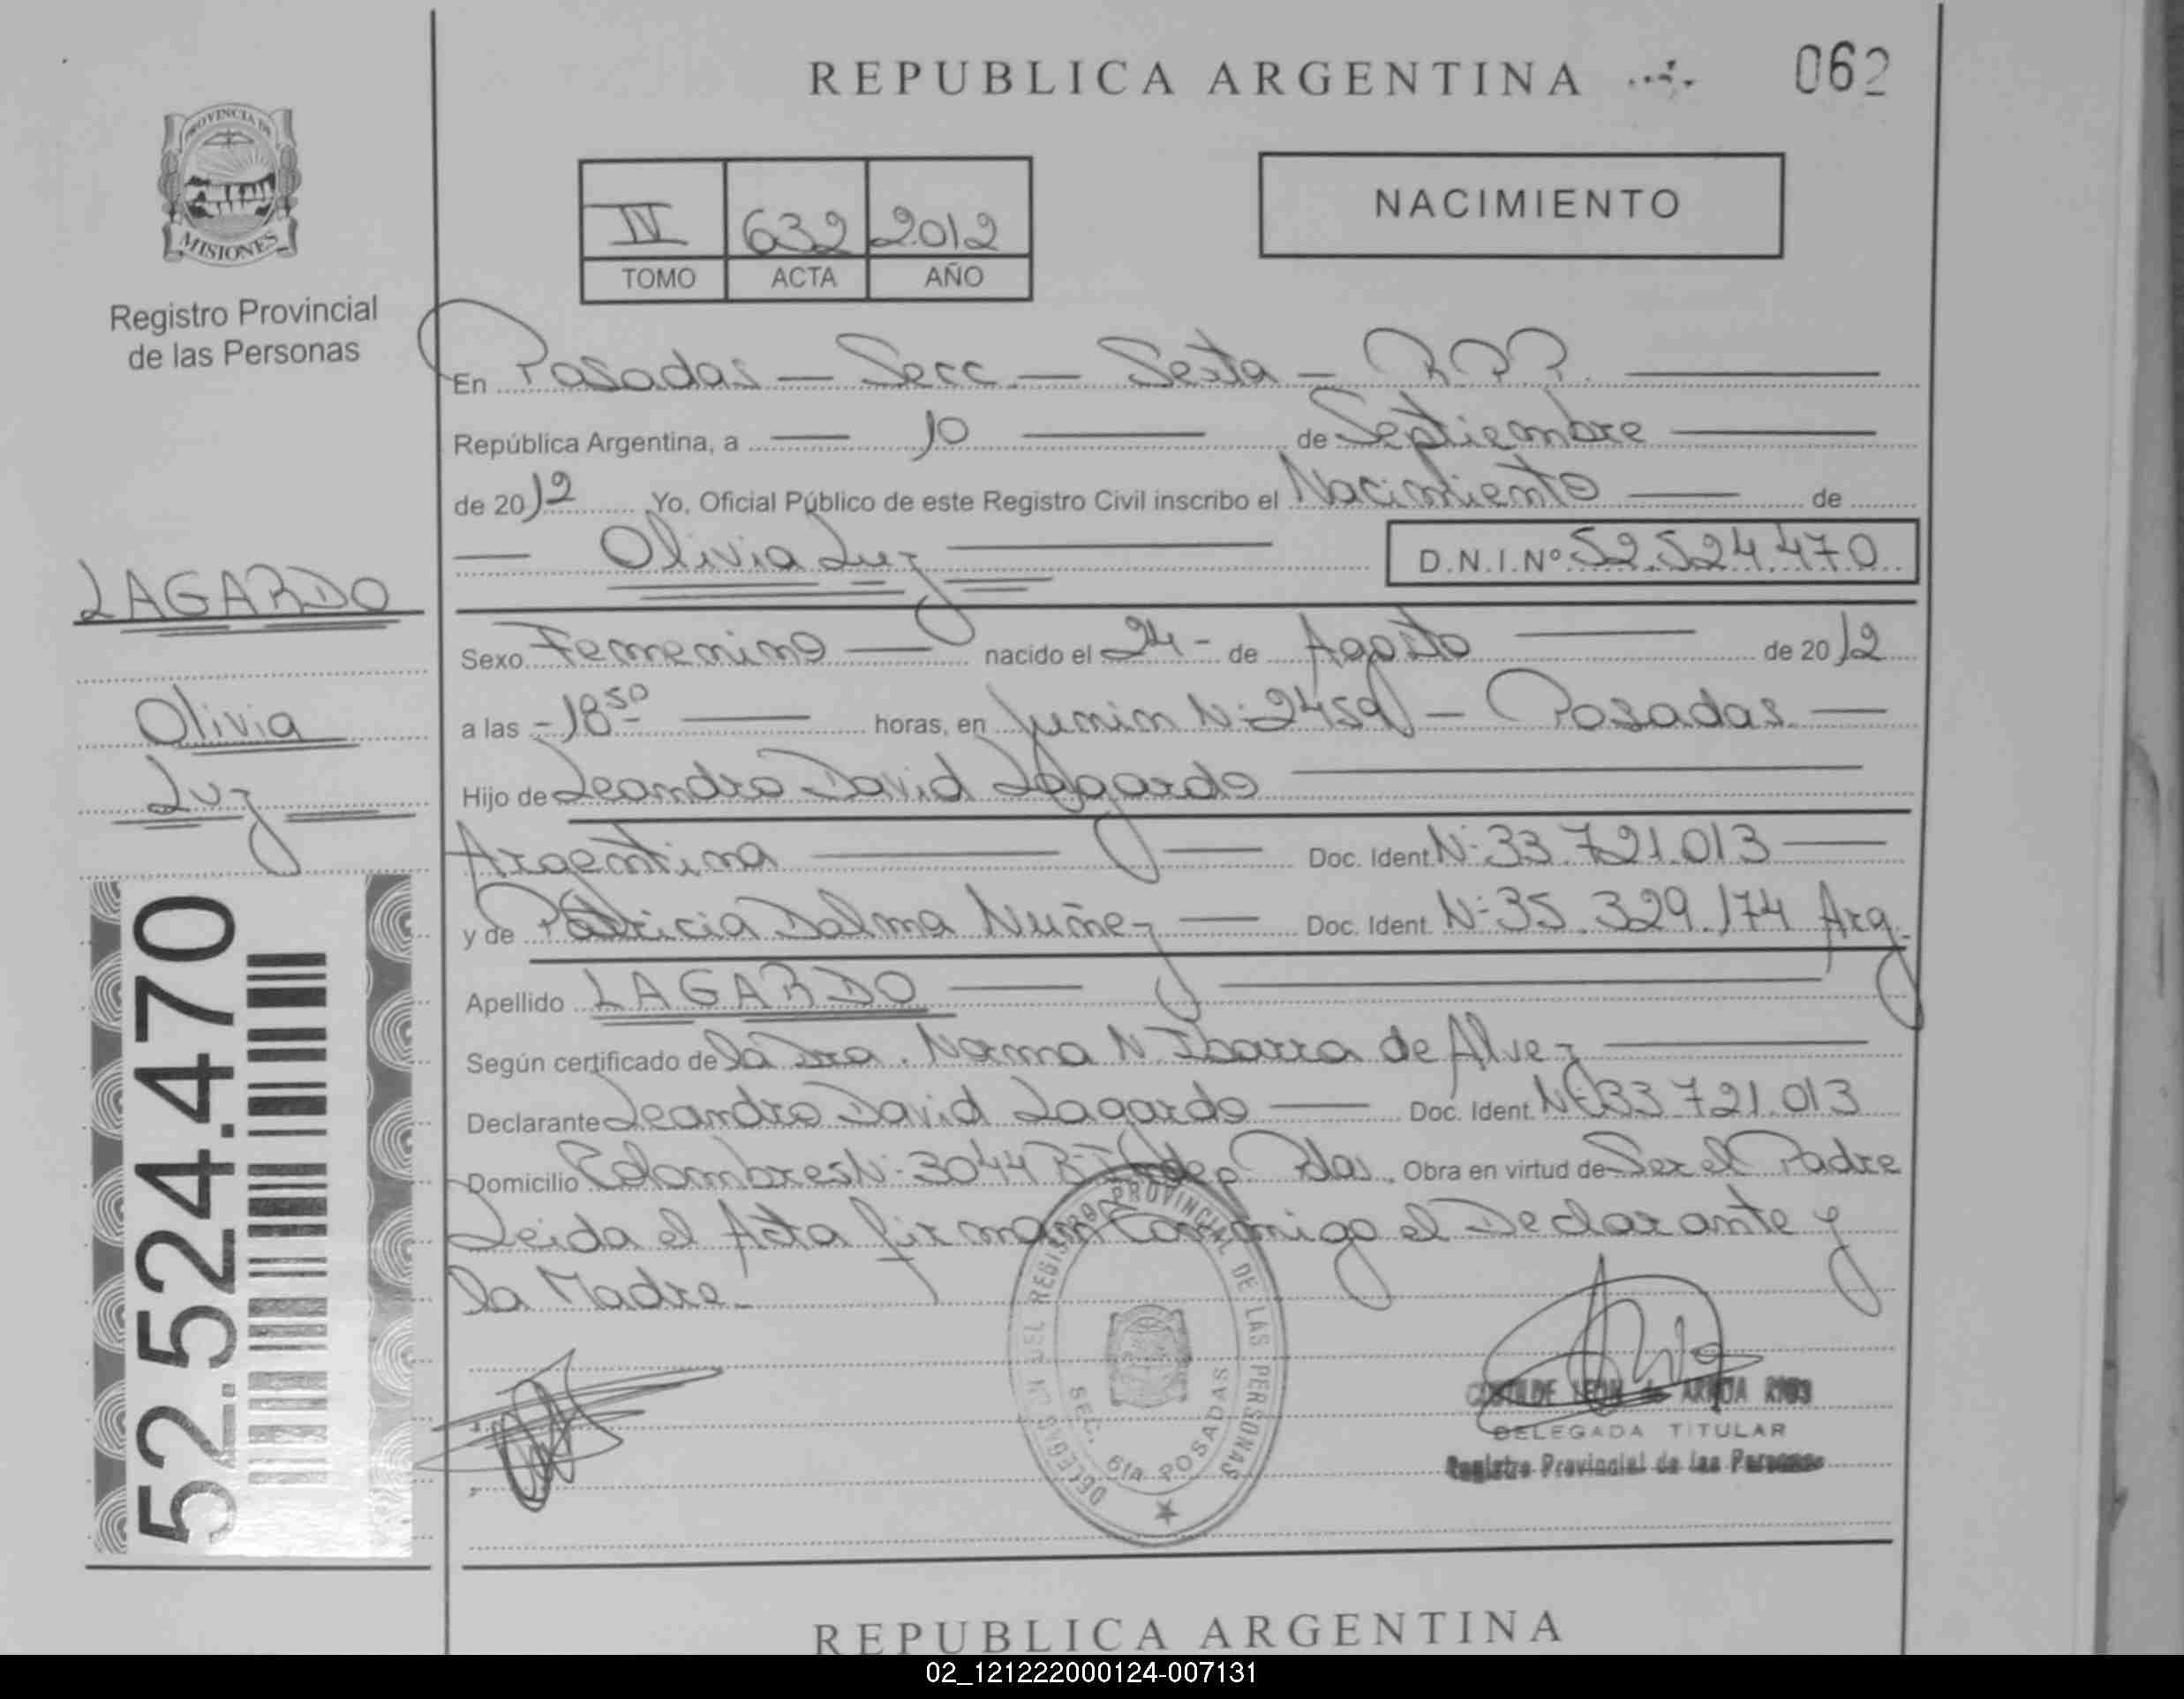 REPUBLICA ARGENTINA
062
PROVINCIA DE
MISIONES
Registro Provincial
de las Personas
IV 632 2012
TOMO ACTA AÑO
NACIMIENTO
En Posadas - Secc. - Sexta - R.P.P.
República Argentina, a 10 de Septiembre
de 2012 Yo, Oficial Público de este Registro Civil inscribo el Nacimiento de
Olivia Luz D.N.I.Nº 52.524.470
LAGARDO
Olivia
Luz
52.524.470
Sexo Femenino nacido el 24 - de Agosto de 2012
a las - 18 50 horas, en Junin Nº 2459 - Posadas.
Hijo de Leandro David Lagardo
Argentina Doc. Ident. Nº 33.721.013
y de Patricia Dalma Nuñez Doc. Ident. Nº 35.329.174 Arg.
Apellido LAGARDO
Según certificado de la Dra. Norma N Ibarra de Alvez
Declarante Leandro David Lagardo Doc. Ident. Nº 33.721.013
Domicilio Colombres Nº 3044 Bº Indep. Pdas. Obra en virtud de Ser el Padre
Leida el Acta firman Conmigo el Declarante y
la Madre.
DELEGACION DEL REGISTRO PROVINCIAL DE LAS PERSONAS
SEC. 6TA POSADAS
LEON de
DELEGADA TITULAR
Registro Provincial de las Personas
REPUBLICA ARGENTINA
02_121222000124-007131